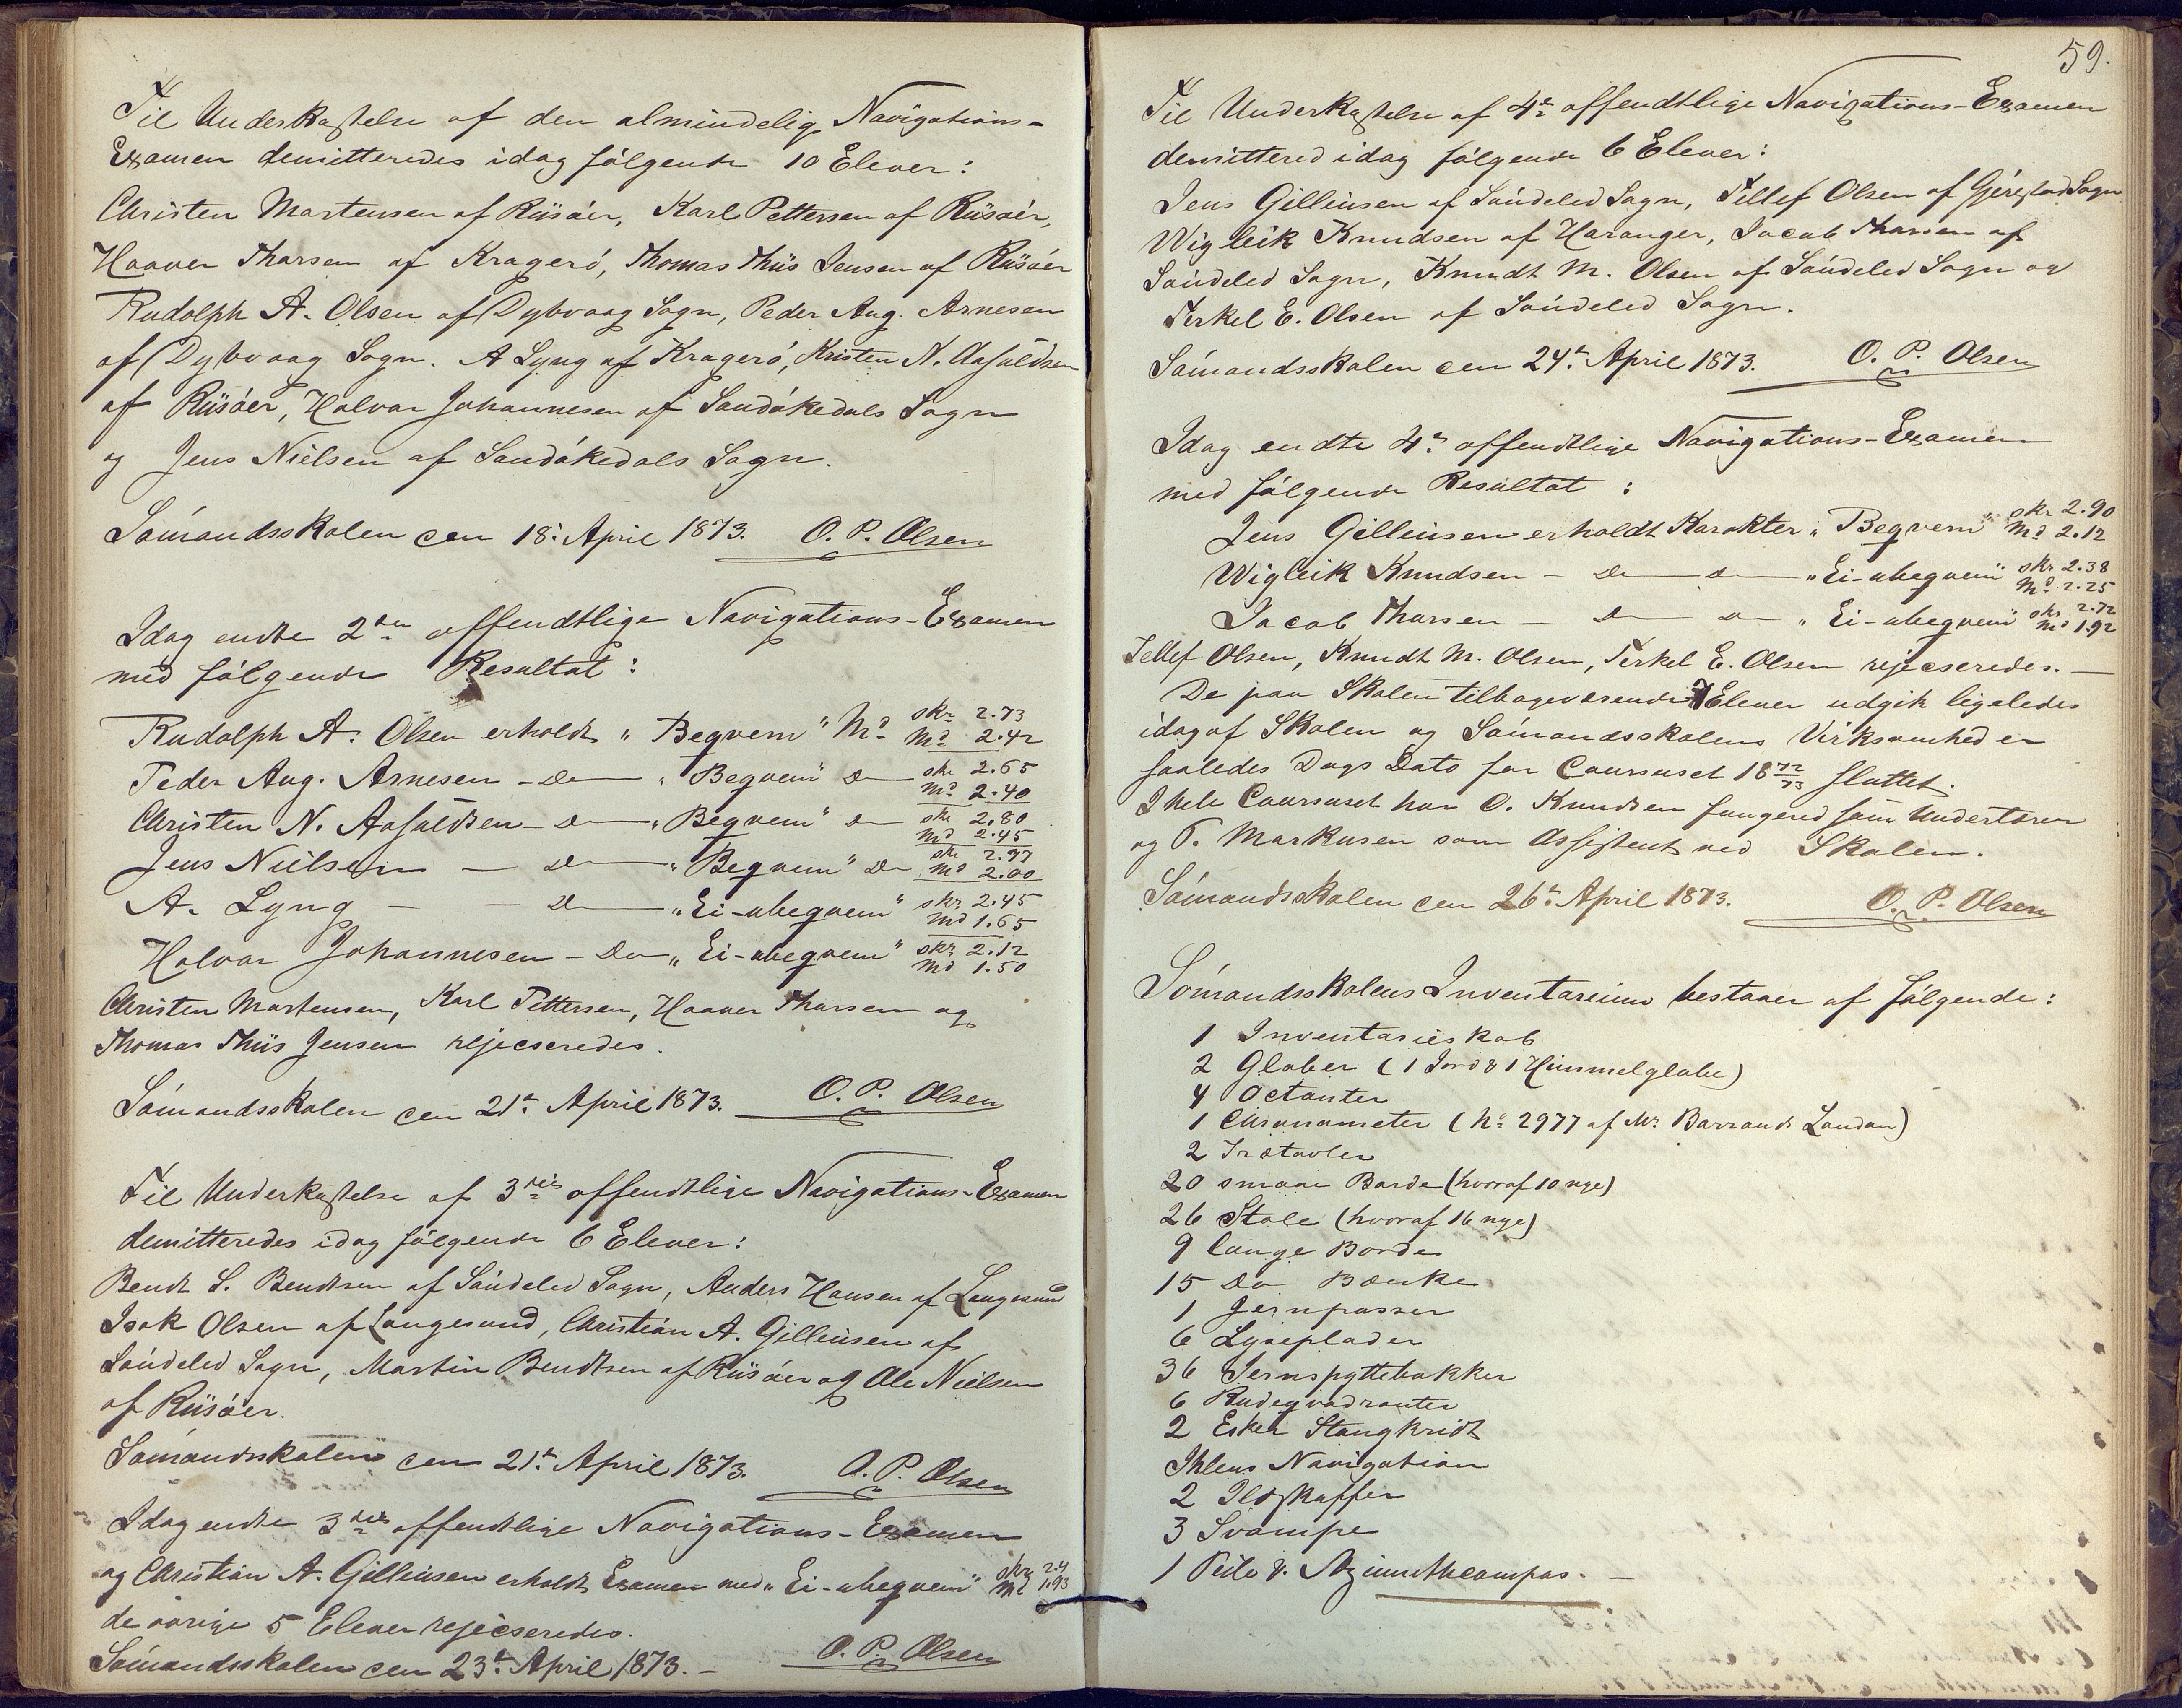 Til Underkastelse af den almindelig Navigations-
Examen demitteredes idag følgende 10 Elever:
Christen Martensen af Riisøer, Karl Pettersen af Riisøer,
Haaver Tharsen af Kragerø, Thomas Thiis Jensen af Riisøer
Rudolph A. Olsen af Dybvaag Sogn, Peder Aug. Arnesen
af Dybvaag Sogn. A Lyng af Kragerø, Kristen N. Aasuldsen
af Riisøer, Halvor Johannesen af Sandøkedals Sogn
og Jens Nielsen af Sandøkedals Sogn.
Sømandsskolen den 18. April 1873. O. P. Olsen
Idag endte 2den offendtlige Navigations-Examen
med følgende Resultat:
Rudolph A. Olsen erholdt "Beqvem" Md skr 2.73 Md 2.42
Peder Aug. Arnesen - Do "Beqvem" Do skr 2.65 Md 2.40
Christen N. Aasuldsen - Do "Beqvem" Do skr 2.80 Md 2.45
Jens Nielsen - Do "Beqvem" Do skr 2.97 Md 2.00
A. Lyng - - Do "Ei-ubeqvem" skr 2.45 Md 1.65
Halvor Johannesen - Do "Ei-ubeqvem" skr 2.12 Md 1.50
Christen Martensen, Karl Pettersen, Haaver Tharsen og
Thomas Thiis Jensen rejeceredes.
Sømandsskolen den 21d April 1873. O. P. Olsen
Til Underkastelse af 3die offendtlige Navigations-Examen
demitteredes idag følgende 6 Elever:
Bendt S. Bendtsen af Søndeled Sogn, Anders Hansen af Langesund
Isak Olsen af Langesund, Christian A. Gilleusen af
Søndeled Sogn, Martin Bendtsen af Riisøer og Ole Nielsen
af Riisøer.
Sømandsskolen den 21d April 1873. O. P. Olsen
Idag endte 3die offendtlige Navigations-Examen
og Christian A. Gilleusen erholdt Examen med "Ei-ubeqvem" skr 2.4 Md 1.93
de øvrige 5 Elever rejeceredes.
Sømandsskolen den 23d April 1873. - O. P. Olsen
59.
Til Underkastelse af 4de offendtlige Navigations-Examen
demittered idag følgende 6 Elever:
Jens Gilleusen af Søndeled Sogn, Tellef Olsen af Gjerestad Sogn
Wigleik Knudsen af Haranger, Jacob Tharsen af
Søndeled Sogn, Knudt M. Olsen af Søndeled Sogn og
Terkel E. Olsen af Søndeled Sogn.
Sømandsskolen den 24d April 1873. O. P. Olsen
Idag endte 4de offendtlige Navigations-Examen
med følgende Resultat:
Jens Gilleusen erholdt Karakter "Beqvem" skr 2.90 Md 2.12
Wigleik Knudsen - Do - Do - "Ei-ubeqvem" skr 2.38 Md 2.25
Jacob Tharsen - Do Do "Ei-ubeqvem" skr 2.72 Md 1.92
Tellef Olsen, Knudt M. Olsen, Terkel E. Olsen rejeceredes. -
De paa Skolen tilbageværende 7 Elever udgik ligeledes
idag af Skolen og Sømandsskolens Virksomhed er
saaledes Dags Dato for Coursuset 1872/73 sluttet.
I hele Coursuset har O. Knudsen fungered som Underlærer
og T. Markusen som Assistent ved Skolen.
Sømandsskolen den 26d April 1873. O. P. Olsen
Sømandsskolens Inventarium bestaaer af følgende:
1 Inventarieskab
2 Glober (1 Jord & 1 Himmelglobe)
4 Octanter
1 Chronometer (No 2977 af Mr Barrauds London)
2 Trætavler
20 smaae Borde (hvoraf 10 nye)
26 Stole (hvoraf 16 nye)
9 lange Borde
15 Do Bænke
1 Jernpasser
6 Lyseplader
36 Jernspyttebakker
6 Rudeqvadranter
2 Esker Stangkridt
Ihlens Navigation
2 Ildskuffer
3 Svampe
1 Peile & Azimuthcompas. -